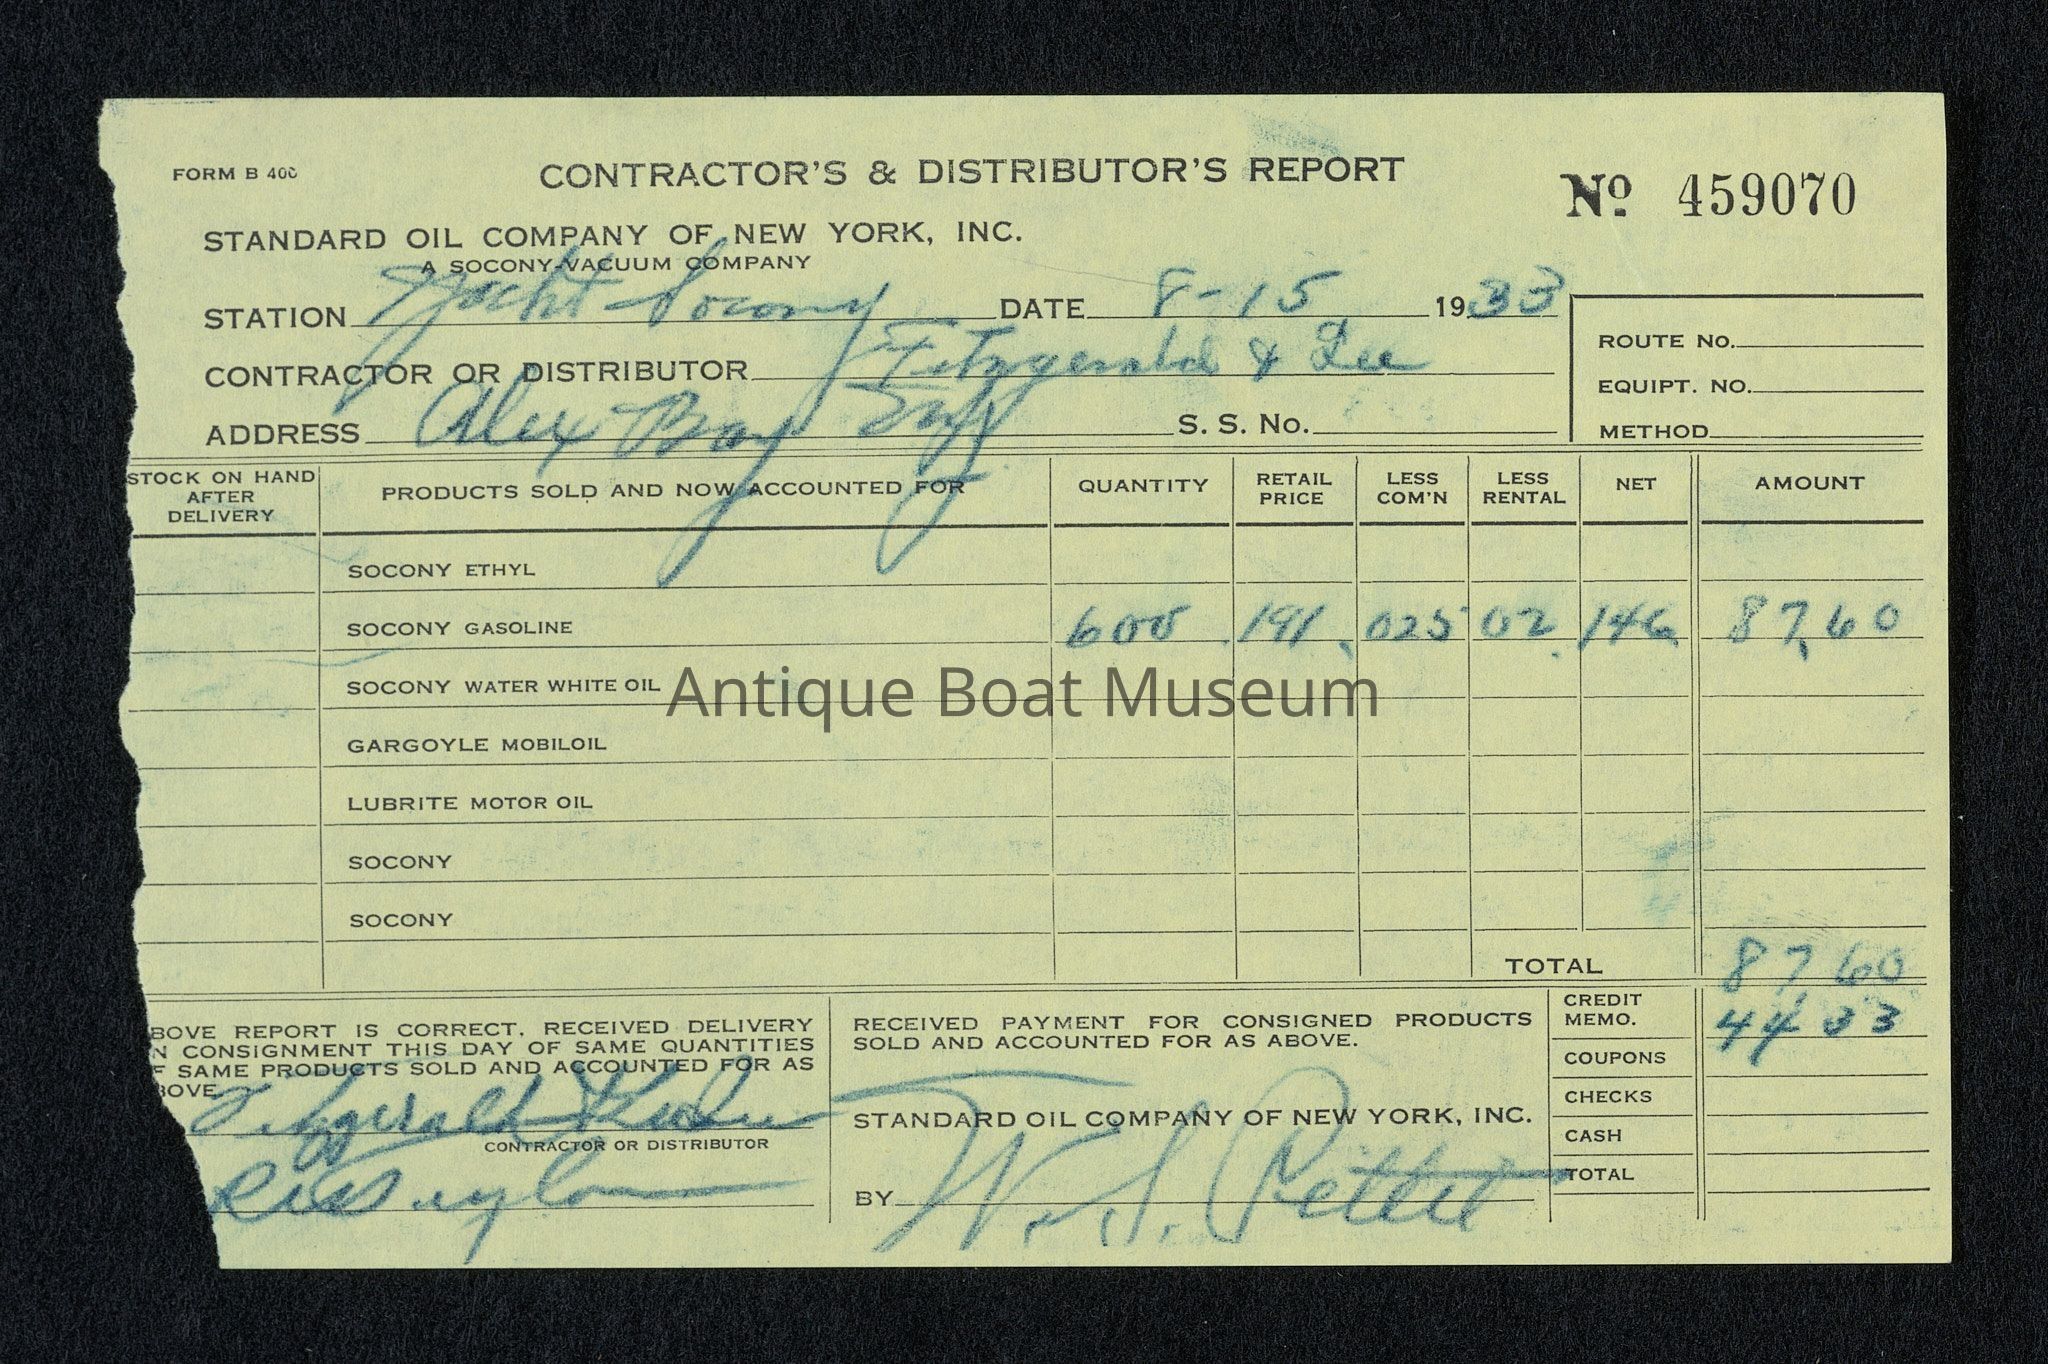 FORM B 400
CONTRACTOR'S & DISTRIBUTOR'S REPORT
No. 459070
STANDARD OIL COMPANY OF NEW YORK, INC.
A SOCONY-VACUUM COMPANY
STATION Yacht Socony DATE 8-15 1933
ROUTE No.
CONTRACTOR OR DISTRIBUTOR Fitzgerald & Lee
EQUIPT. NO.
ADDRESS Alex Bay S. S. No.
METHOD
STOCK ON HAND AFTER DELIVERY PRODUCTS SOLD AND NOW ACCOUNTED FOR QUANTITY RETAIL PRICE LESS COM'N LESS RENTAL NET AMOUNT
SOCONY ETHYL
SOCONY GASOLINE 600 .191 .025 02 .146 87.60
SOCONY WATER WHITE OIL
Antique Boat Museum
GARGOYLE MOBILOIL
LUBRITE MOTOR OIL
SOCONY
SOCONY
TOTAL 87 60
BOVE REPORT IS CORRECT. RECEIVED DELIVERY
N CONSIGNMENT THIS DAY OF SAME QUANTITIES
F SAME PRODUCTS SOLD AND ACCOUNTED FOR AS
BOVE.
Fitzgerald
CONTRACTOR OR DISTRIBUTOR
RECEIVED PAYMENT FOR CONSIGNED PRODUCTS
SOLD AND ACCOUNTED FOR AS ABOVE.
STANDARD OIL COMPANY OF NEW YORK, INC.
BY W. S. Pettit
CREDIT MEMO. 44 33
COUPONS
CHECKS
CASH
TOTAL